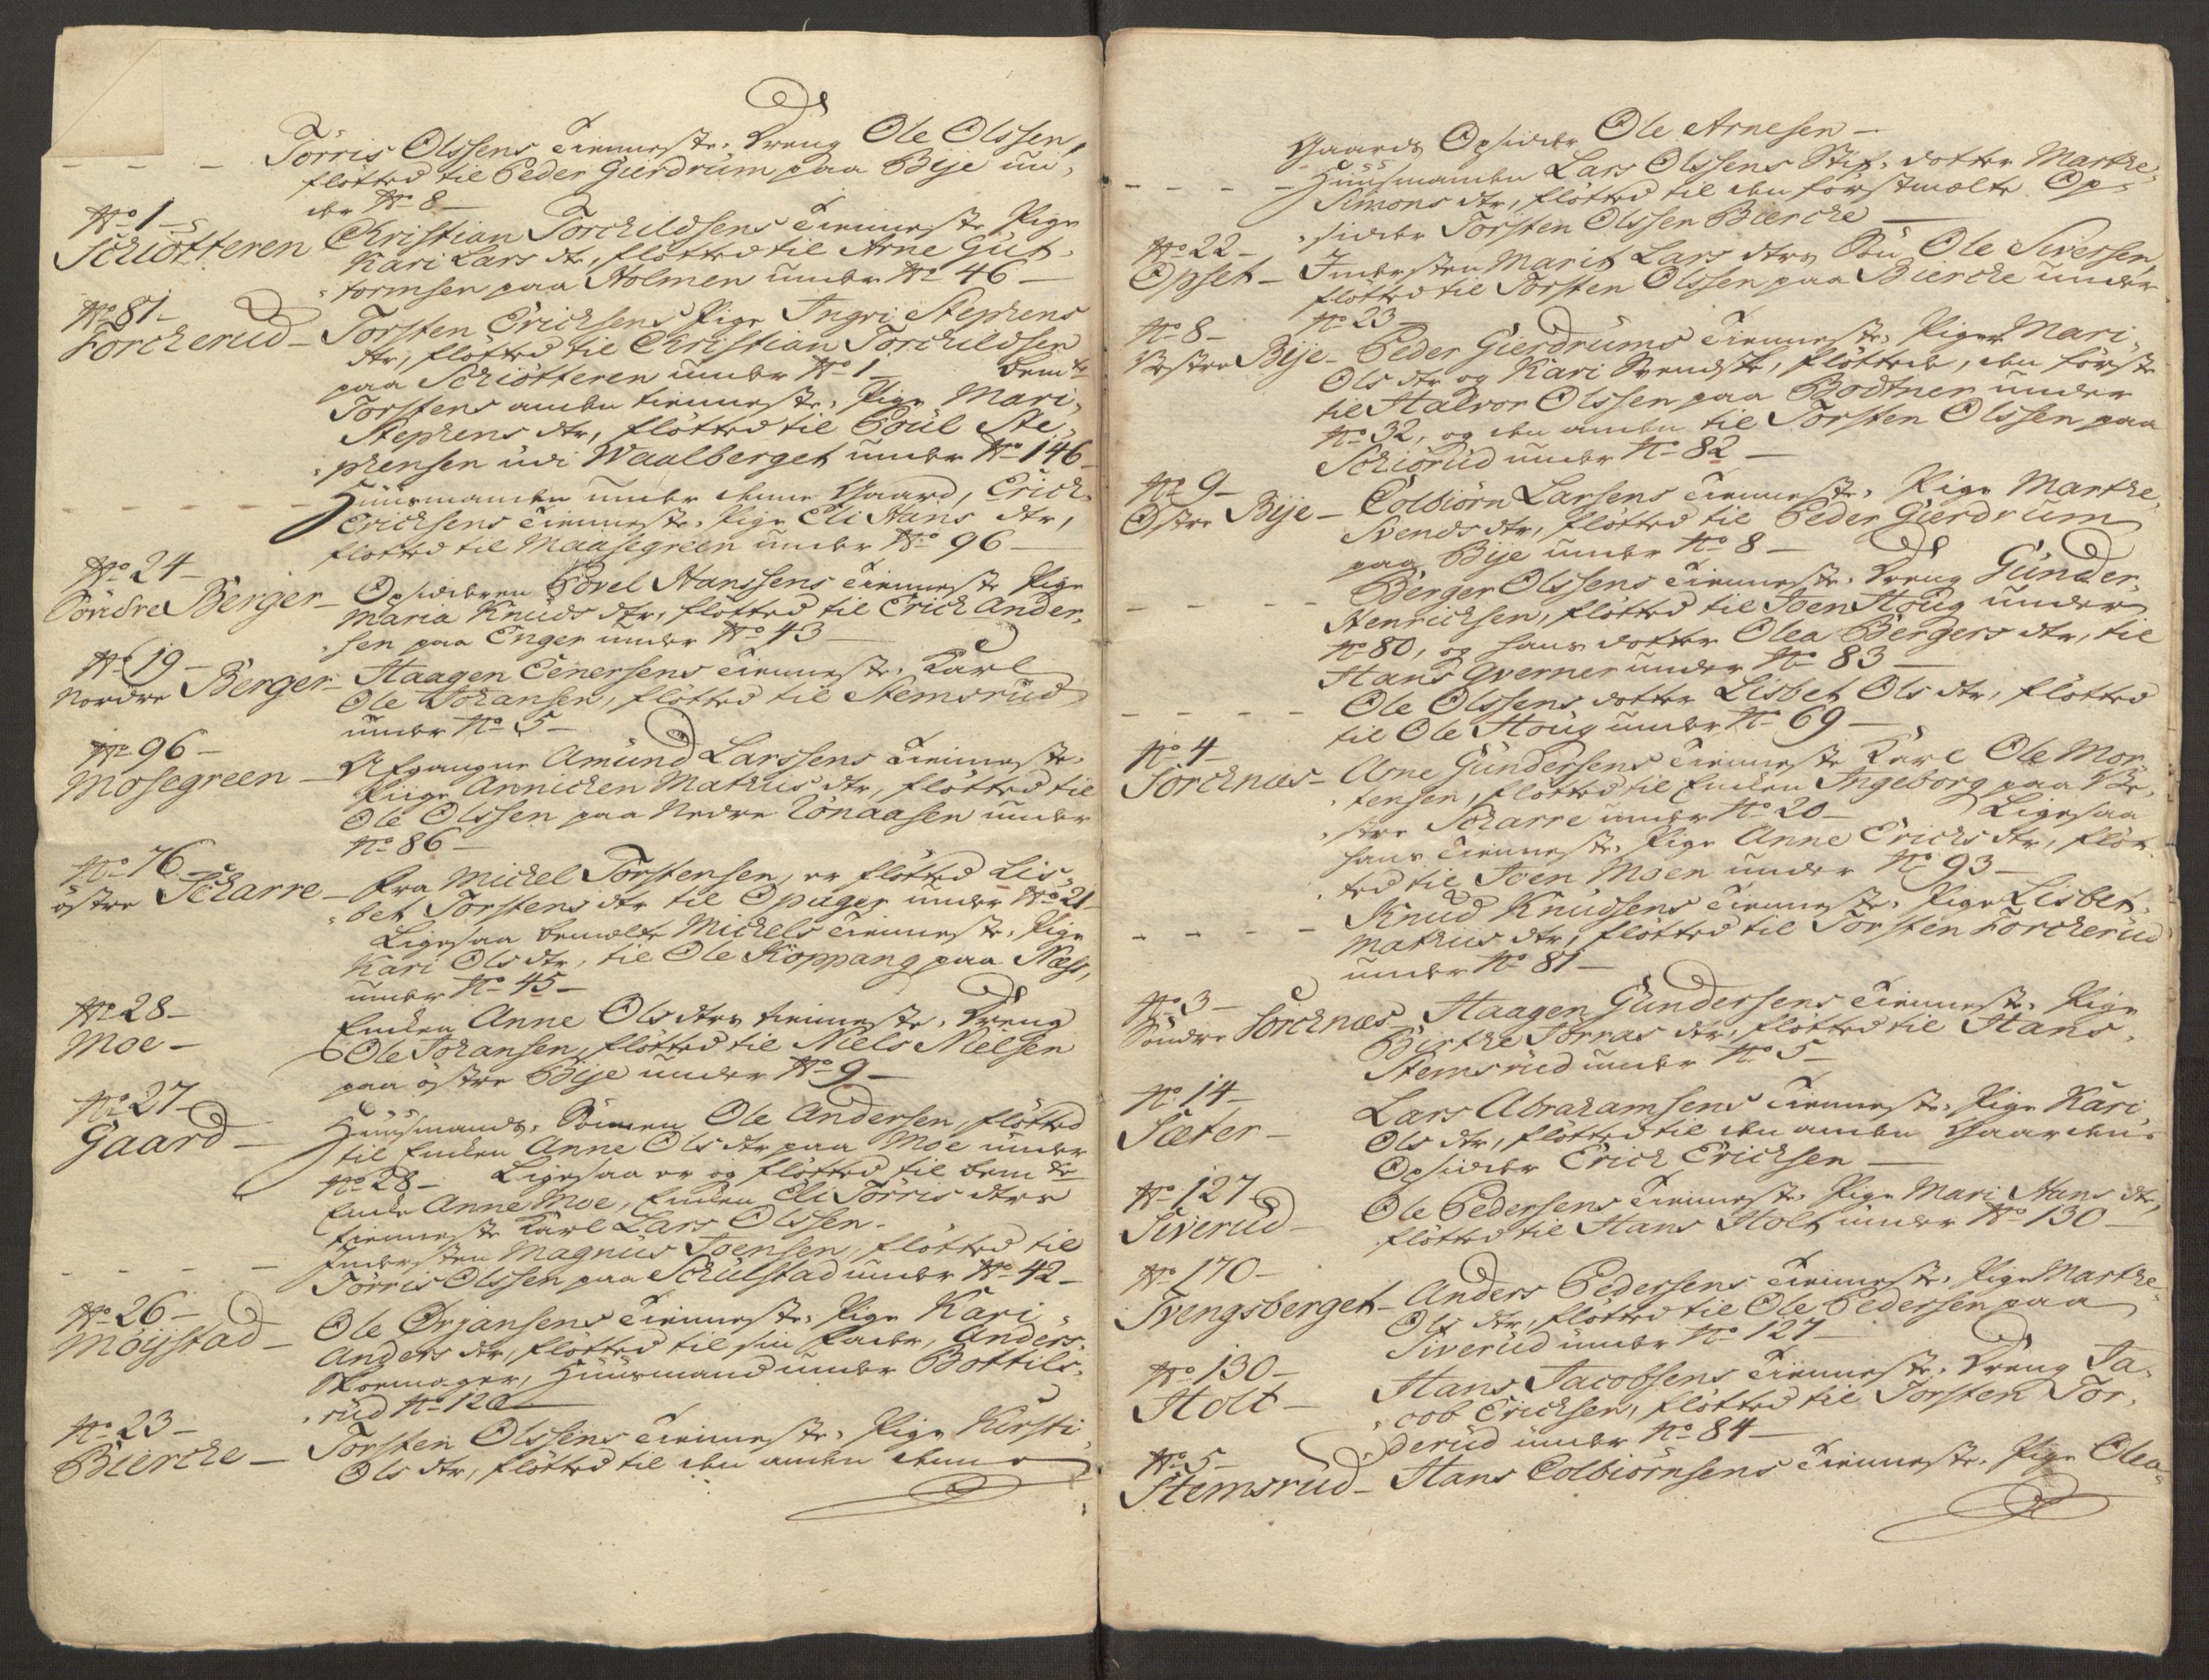 - - - Törris Olssens Tienneste, Dreng Ole Olssen,
flötted til Peder Gierdrum paa Bije un,
der No 8 -
No 1 -
Schiötteren Christian Torchildsens Tienneste Pige
Kari Lars dtr, flötted til Arne Gut,
tormsen paa Holmen under No 46 -
No 81 -
Torcherud - Torsten Erichsens Pige Ingri Stephens
dtr, flötted til Christian Torchildsen
paa Schiötteren under No 1 - bemte
Torstens anden tienneste, Pige Mari,
Stephens dtr, flötted til Poul Ste,
phensen udi Waalberget under No 146 -
- - - - Huusmanden under denne Gaard, Erich
Erichsens Tienneste, Pige Eli Hans dtr,
flötted til Maasegreen under No 96 -
No 24 -
Söndre Berger - Opsidderen Povel Hanssens Tienneste Pige
Maria Knuds dtr, flötted til Erich Ander,
sen paa Enger under No 43 -
No 19 -
Nordre Berger - Haagen Einersens Tienneste, Karl
Ole Johansen, flötted til Stemsrud
under No 5 -
No 96 -
Mosegreen - Afgangne Amund Larssens Tienneste,
Piige Annichen Mathis dtr, flötted til
Ole Olssen paa Nedre Rönaasen under
No 86 -
No 76 -
östre Scharre - fra Michel Torstensen, er flötted Lis,
bet Torstens dtr til Opager under No 21 -
Ligesaa bemelte Michels Tienneste, Pige
Kari Ols dtr, til Ole Koppang paa Næss,
under No 45 -
No 28 -
Moe - Enken Anne Ols dtrs tienneste, Dreng
Ole Johansen, flötted til Niels Nielsen
paa östre Bije under No 9 -
No 27 -
Gaard - Huusmands, Sönnen Ole Andersen, flötted
til Enken Anne Ols dtr paa Moe under
No 28 - Ligesaa er og flötted til bemte
Enke Anne Moe, Enken Eli Törris dtrs
tienneste Karl Lars Olssen -
- - - - Indersten Magnus Joensen, flötted til
Törris Olssen paa Schulstad under No 42 -
No 26 -
Möystad - Ole Örjansens Tienneste, Pige Kari,
Anders dtr, flötted til sin Fader, Anders
Skoemager, Huusmand under Bottils,
rud No 120 -
No 23 -
Bierche - Torsten Olssens Tienneste, Pige Kirsti,
Ols dtr, flötted til den anden denne
Gaards Opsidder Ole Arnesen -
- - - - Huusmanden Lars Olssens Stif, dotter Marthe,
Simons dtr, flötted til den förstmelte Op,
sidder Torsten Olssen Bierche -
No 22 -
Opset - Indersten Marit Lars dtrs Sön Ole Siversen,
flötted til Torsten Olssen paa Bierche under
No 23 -
No 8 -
Vestre Bije - Peder Gierdrums Tienneste, Piger Mari,
Ols dtr og Kari Svendsdtr, flöttede, den förste
til Halvor Olssen paa Bodtner under
No 32, og den anden til Torsten Olssen paa
Schiörud under No 82 -
No 9 -
Östre Bije - Colbiörn Larsens Tienneste, Pige Marthe,
Svends dtr, flötted til Peder Gierdrum
paa Bije under No 8 -
- - - - Berger Olssens Tienneste, Dreng Gunder,
Henrichsen, flötted til Joen Houg under
No 80, og hans dotter Olea Bergers dtr, til
Hans Qverner under No 83 -
- - - - Ole Olssens dotter Lisbet Ols dtr, flötted
til Ole Houg under No 69 -
No 4 -
Sorchnæs - Arne Gundersens Tienneste Karl Ole Mor,
tensen, flötted til Enken Ingeborg paa Ve,
stre Scharre under No 20 - Ligesaa
hans Tienneste, Pige Anne Erichs dtr, flöt,
ted til Joen Moen under No 93 -
- - - - Knud Knudsens Tienneste, Pige Lisbet,
Mathus dtr, flötted til Torsten Torcherud
under No 81 -
No 3 -
Söndre Sorchnæs - Haagen Gundersens Tienneste, Pige
Birthe Jorras dtr, flötted til Hans,
Stemsrud under No 5 -
No 14 -
Sæter - Lars Abrahamsens Tienneste, Pige Kari,
Ols dtr, flötted til den anden Gaardens
Opsidder Erich Erichsen -
No 127 -
Siverud - Ole Pedersens Tienneste, Pige Mari Hans dtr,
flötted til Hans Holt under No 130 -
No 170 -
Svengsberget - Anders Pedersens Tienneste, Pige Marthe,
Ols dtr, flötted til Ole Pedersen paa
Siverud under No 127 -
No 130 -
Holt - Hans Jacobsens Tienneste, Dreng Ja,
cob Erichsen, flötted til Torsten Tor,
derud under No 84 -
No 5 -
Stemsrud - Hans Colbiörnsens Tienneste, Pige Olea,